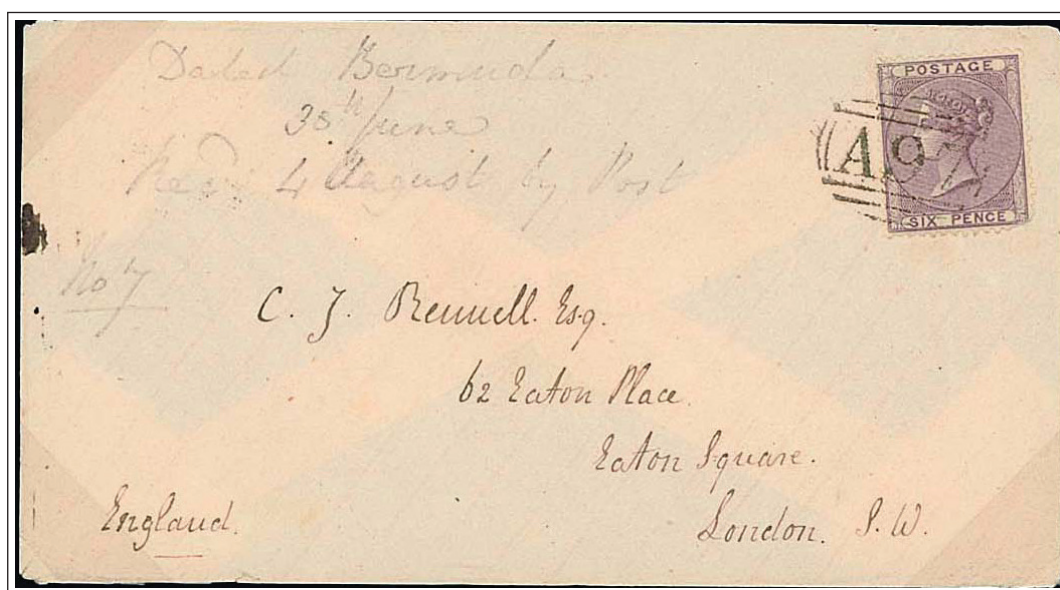 Dated Bermuda
30th June
Recd 4 August by Post
No 7
POSTAGE
SIX PENCE
A9
C. J. Rennell. Esq.
62 Eaton Place.
Eaton Square.
London. S.W.
England.